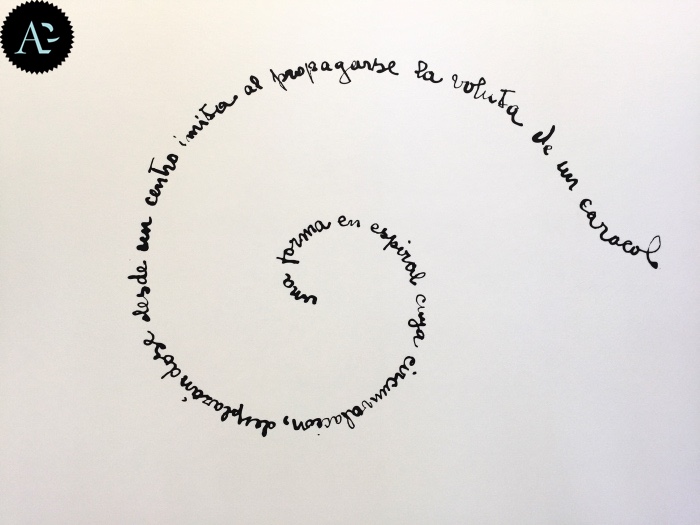 una forma en espiral cuya circunvalación, desplazándose desde un centro imita al propagarse la voluta de un caracol